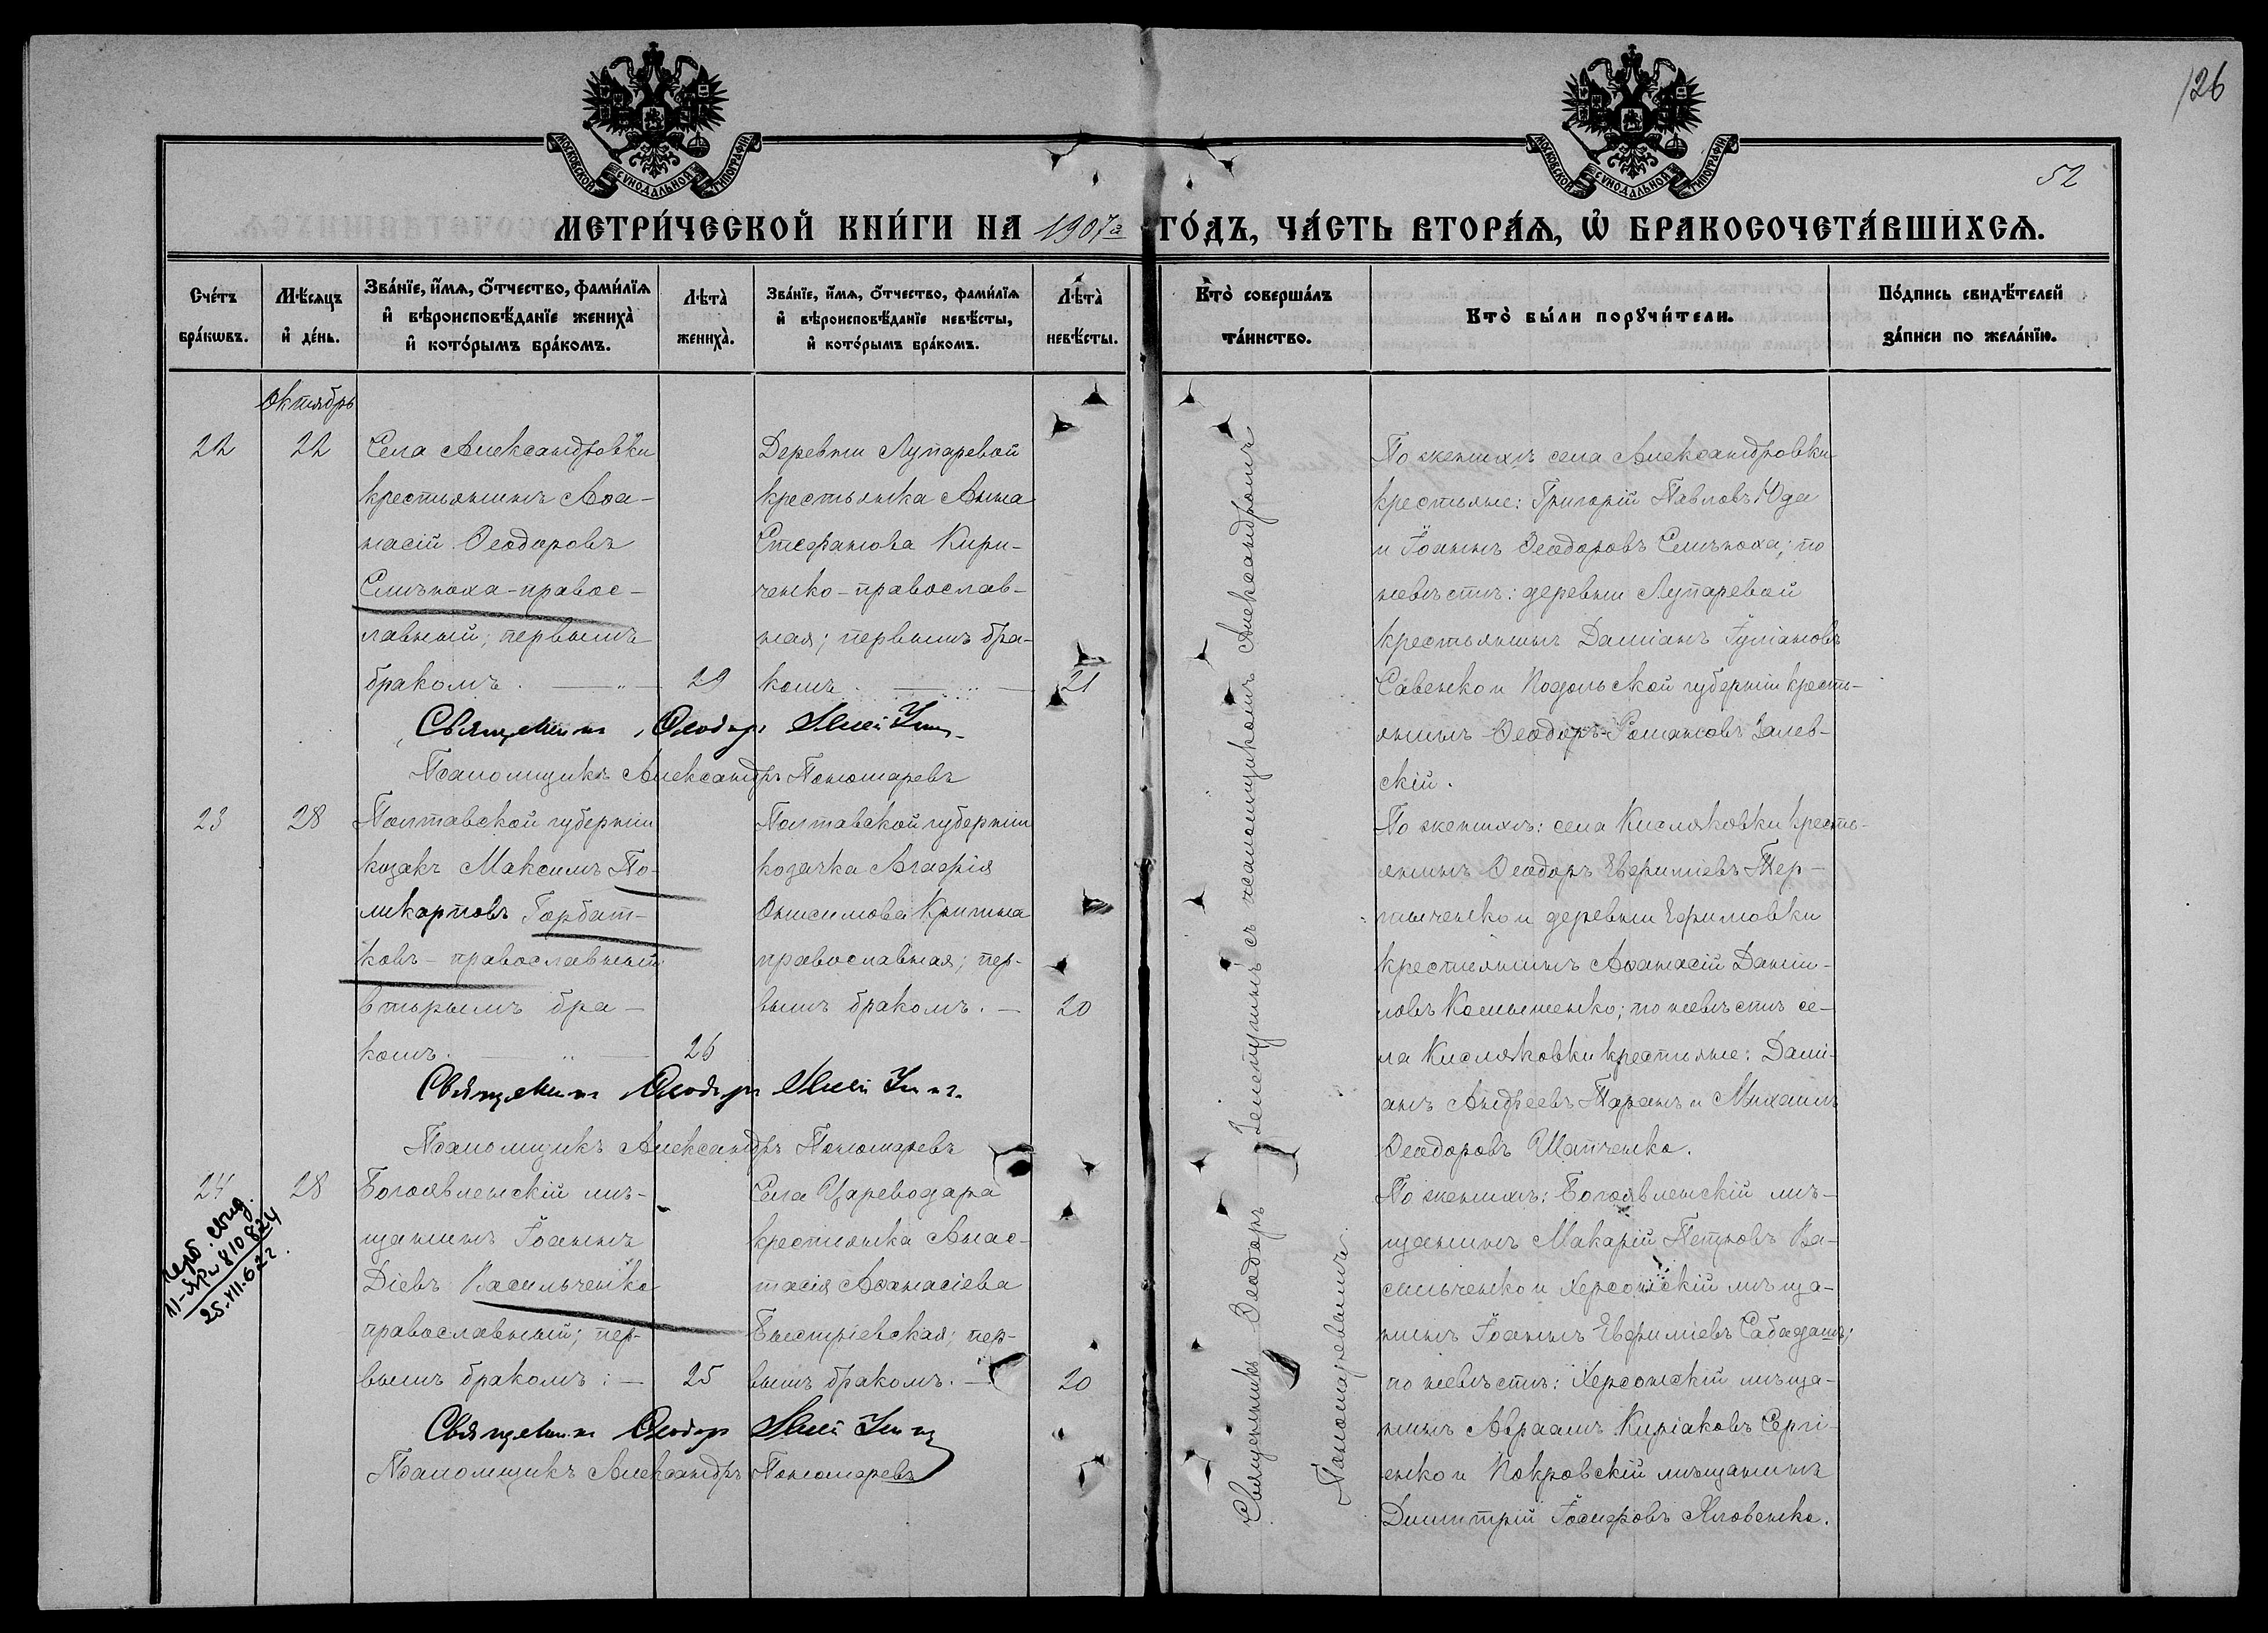 126
52
МОСКОВСКОЙ СѴНОДАЛЬНОЙ ТИПОГРАФІИ
МОСКОВСКОЙ СѴНОДАЛЬНОЙ ТИПОГРАФІИ
МЕТРИ́ЧЕСКОЙ КНИ́ГИ НА 1907й ГО́ДЪ, ЧА́СТЬ ВТОРА́Ѧ, Ѡ҆ БРАКОСОЧЕТА́ВШИХСѦ.
Сче́тъ бра́кωвъ.
Мѣ́сяцъ и҆ де́нь.
Зва́нїе, и҆́мѧ, ѻ҆́тчество, фами́лїѧ и҆ вѣроисповѣ́данїе жениха̀ и҆ кото́рымъ бра́комъ.
Лѣ́та̀ жениха̀.
Зва́нїе, и҆́мѧ, ѻ҆́тчество, фами́лїѧ и҆ вѣроисповѣ́данїе невѣ́сты, и҆ кото́рымъ бра́комъ.
Лѣ́та̀ невѣ́сты.
Кто̀ соверша́лъ та́инство.
Кто̀ бы́ли порꙋчи́тели.
По́дпись свидѣ́телей за́писи по жела́нїю.
Октябрь
22
22
Села Александровки
крестьянинъ Аѳа-
насій Ѳеодоровъ
Слипоха-правос-
лавный; первымъ
бракомъ. — „ —
29
Деревни Лупаревой
крестьянка Анна
Стефанова Кири-
ченко-православ-
ная; первымъ бра-
комъ. — „ —
21
Священникъ Ѳеодоръ
Псаломщикъ Александръ Пономаревъ
По женихѣ села Александровки
крестьяне: Григорій Павловъ Юда
и Іоаннъ Ѳеодоровъ Слѣпоха; по
невѣстѣ: деревни Лупаревой
крестьянинъ Даміанъ Іуліановъ
Савенко и Подольской губерніи кресть-
янинъ Ѳеодоръ Романовъ Залев-
скій.
23
28
Полтавской губерніи
козакъ Максимъ По-
ликарповъ Горбат-
ковъ-православный
вторымъ бра-
комъ. — „ —
26
Полтавской губерніи
козачка Агафія
Онисимова Крипна
православная; пер-
вымъ бракомъ. —
20
Священникъ Ѳеодоръ
Псаломщикъ Александръ Пономаревъ
По женихѣ: села Кисляковки кресть-
янинъ Ѳеодоръ Евфиміевъ Тер-
пыченко и деревни Ефимовки
крестьянинъ Аѳанасій Дани-
ловъ Комышенко; по невѣстѣ се-
ла Кисляковки крестьяне: Дамі-
анъ Андреевъ Таранъ и Михаилъ
Ѳеодоровъ Шапченко.
24
28
11-ЯР № 810824
25.VII.62г.
Богоявленскій мѣ-
щанинъ Іоаннъ
Діевъ Васильченко
православный; пер-
вымъ бракомъ: —
25
Села Цареводара
крестьянка Анас-
тасія Аѳанасіева
Быстріевская; пер-
вымъ бракомъ. —
20
Священникъ Ѳеодоръ
Псаломщикъ Александръ Пономаревъ
По женихѣ: Богоявленскій мѣ-
щанинъ Макарій Петровъ Ва-
сильченко и Херсонскій мѣща-
нинъ Іоаннъ Евфиміевъ Сабадашъ;
по невѣстѣ: Херсонскій мѣща-
нинъ Авраамъ Киріаковъ Сергі-
енко и Покровскій мѣщанинъ
Димитрій Іосифовъ Яловенко.
Священникъ Ѳеодоръ съ псаломщикомъ Александромъ
Пономаревымъ